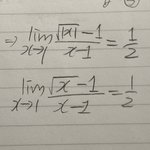 ⇒ lim x→1 (√|x| - 1)/(x - 1) = 1/2
lim x→1 (√x - 1)/(x - 1) = 1/2